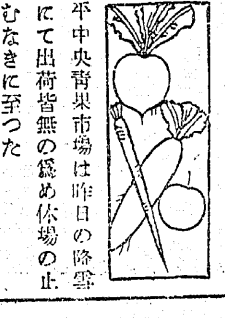 平中央青果市場は昨日の降雪
にて出荷皆無の爲め休場の止
むなきに至つた